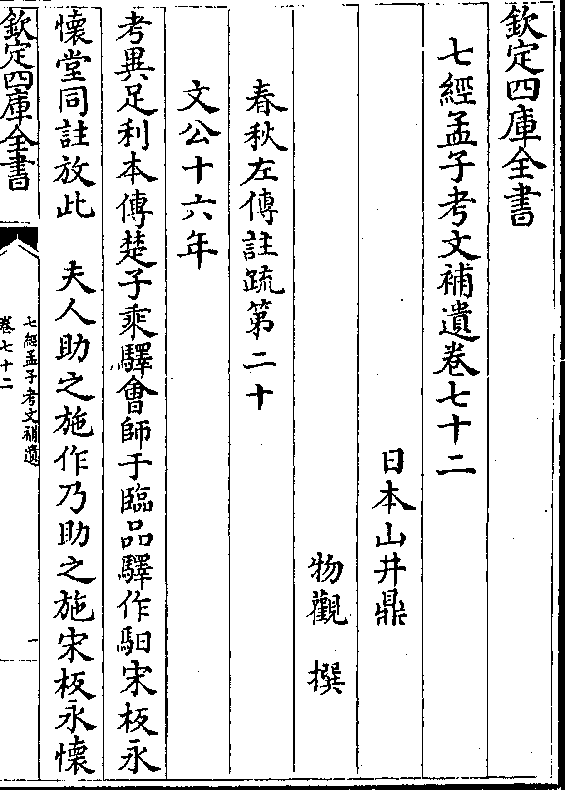 欽定四庫全書
七經孟子考文補遺卷七十二
日本山井鼎
物觀　撰
春秋左傳註疏第二十
文公十六年
考異足利本傳楚子乘驛會師于臨品驛作馹宋板永
懷堂同註放此　夫人助之施作乃助之施宋板永懷
欽定四庫全書
七經孟子考文補遺
卷七十二
一